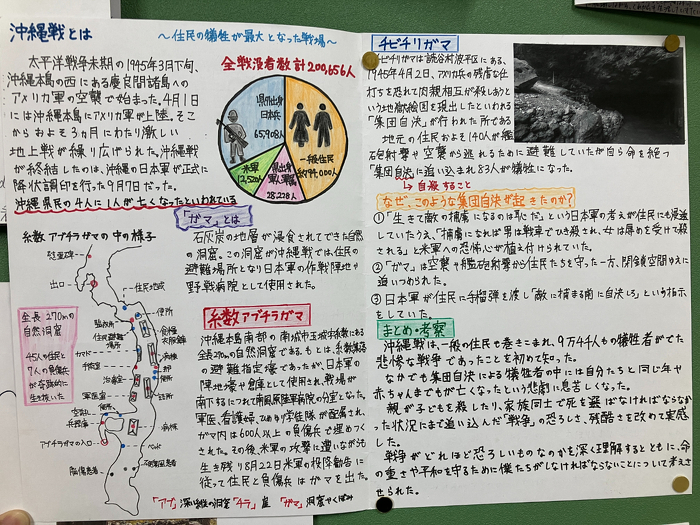 沖縄戦とは
～住民の犠牲が最大となった戦場～
太平洋戦争末期の1945年3月下旬、
沖縄本島の西にある慶良間諸島への
アメリカ軍の空襲で始まった。4月1日
には沖縄本島にアメリカ軍が上陸。そこ
からおよそ3ヵ月にわたり激しい
地上戦が繰り広げられた。沖縄戦
が終結したのは、沖縄の日本軍が正式に
降伏調印を行った9月7日だった。
沖縄県民の4人に1人が亡くなったといわれている
全戦没者数計200,656人
県外出身
日本兵
65,908人
一般住民
約94,000人
米軍
12,520人
県出身
軍人軍属
28,228人
「ガマ」とは
石灰岩の地層が浸食されてできた自然
の洞窟。この洞窟が沖縄戦では、住民の
避難場所となり日本軍の作戦陣地や
野戦病院として使用された。
糸数アブチラガマの中の様子
慰霊碑
出口
住民地域
便所
監視所
住民避難
場所
食糧
衣服倉庫
カマド
病棟
手術室
治療室
軍医室
診所
空気孔
兵器庫
病棟
アブチラガマの入口
ベッド
脳傷患者
破傷風患者
全長270mの
自然洞窟
45人の住民と
7人の負傷兵
が奇跡的に
生き抜いた
糸数アブチラガマ
沖縄本島南部の南城市玉城字糸数にある
全長270mの自然洞窟である。もとは、糸数集落
の避難指定壕であったが、日本軍の
陣地壕や倉庫として使用され、戦場が
南下するにつれて南風原陸軍病院の分室となった。
軍医、看護婦、ひめゆり学徒隊が配属され、
ガマ内は600人以上の負傷兵で埋めつく
された。その後、米軍の攻撃に遭いながら
生き残り8月22日米軍の投降勧告に
従って住民と負傷兵はガマを出た。
「アブ」深い縦の洞窟「チラ」崖 「ガマ」洞窟やくぼみ
チビチリガマ
チビチリガマは読谷村波平区にある。
1945年4月2日、アメリカ兵の残虐な仕
打ちを恐れて肉親相互が殺しあうと
いう地獄絵図を現出したといわれる
「集団自決」が行われた所である
地元の住民およそ140人が艦
砲射撃や空襲から逃れるために避難していたが自ら命を絶つ
「集団自決」に追い込まれ83人が犠牲になった。
↳自殺すること
なぜ、このような集団自決が起きたのか?
①「生きて敵の捕虜になるのは恥だ」という日本軍の考えが住民にも浸透
していたうえ、「捕虜になれば男は戦車でひき殺され、女は辱めを受けて殺
される」と米軍への恐怖心が植え付けられていた。
②「ガマ」は空襲や艦砲射撃から住民たちを守った一方、閉鎖空間ゆえに
追いつめられた。
③日本軍が住民に手榴弾を渡し「敵に捕まる前に自決しろ」という指示
をしていた。
まとめ・考察
沖縄戦は、一般の住民も巻きこまれ、9万4千人もの犠牲者がでた
悲惨な戦争であったことを初めて知った。
なかでも集団自決による犠牲者の中には自分たちと同じ年や
赤ちゃんまでもが亡くなったという悲劇に息苦しくなった。
親が子どもを殺したり、家族同士で死を選ばなければならなか
った状況にまで追い込んだ「戦争」の恐ろしさ、残酷さを改めて実感
した。
戦争がどれほど恐ろしいものなのかを深く理解するとともに、命
の重さや平和を守るために僕たちがしなければならないことについて考えさ
せられた。